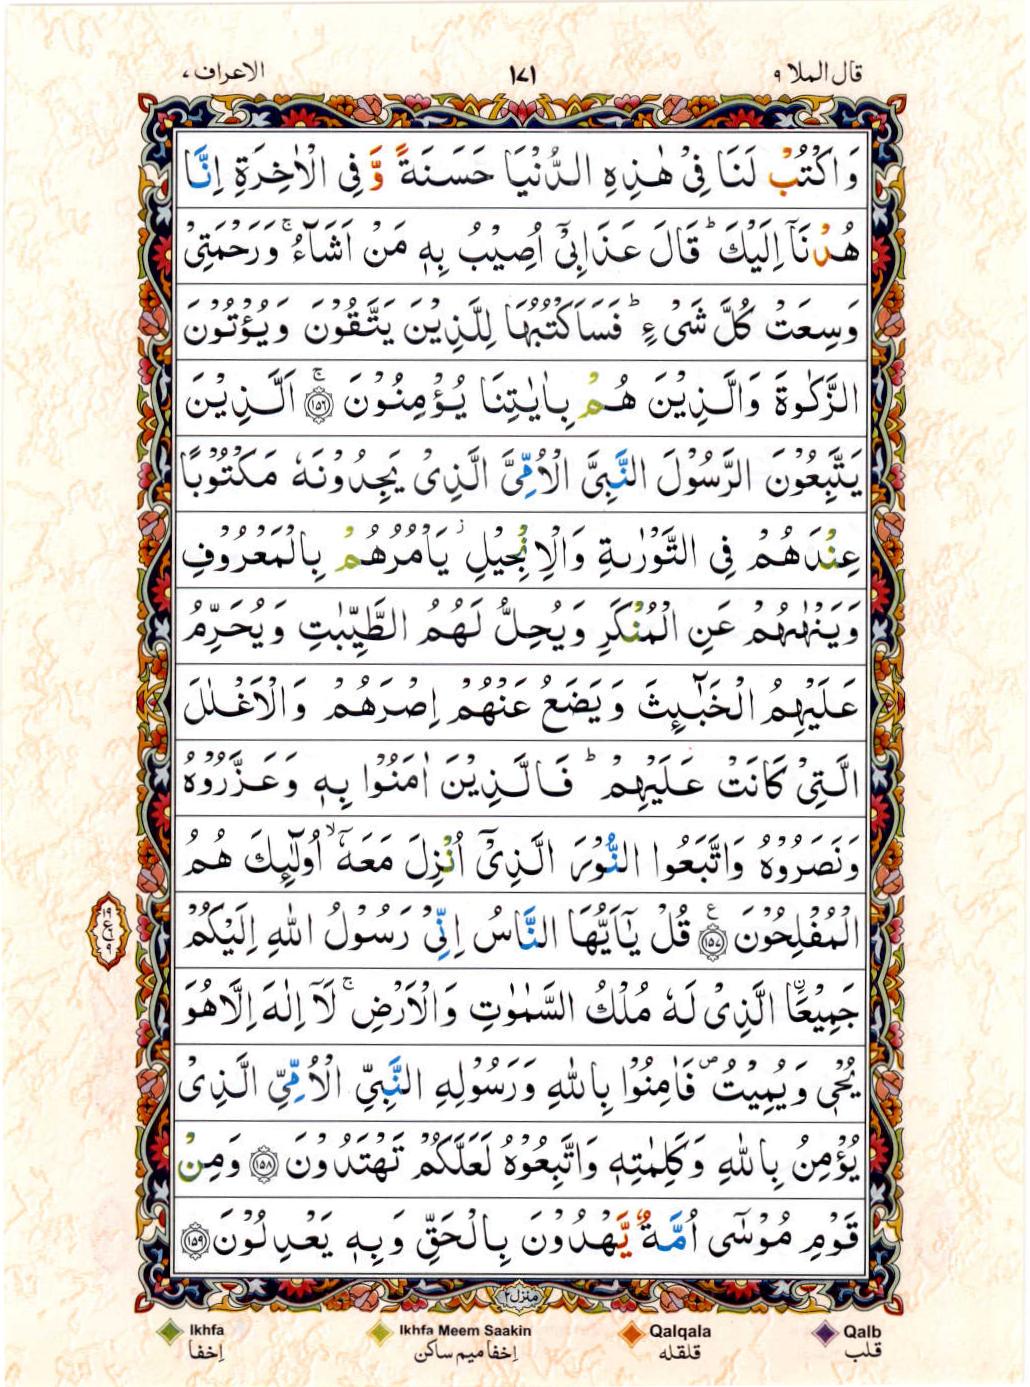 قال الملا ٩
١٧١
الاعراف ٧
وَاكْتُبْ لَنَا فِيْ هٰذِهِ الدُّنْيَا حَسَنَةً وَّ فِي الْاٰخِرَةِ اِنَّا
هُدْنَآ اِلَيْكَ ؕ قَالَ عَذَابِيْٓ اُصِيْبُ بِهٖ مَنْ اَشَآءُ ۚ وَرَحْمَتِيْ
وَسِعَتْ كُلَّ شَيْءٍ ؕ فَسَاَكْتُبُهَا لِلَّذِيْنَ يَتَّقُوْنَ وَيُؤْتُوْنَ
الزَّكٰوةَ وَالَّذِيْنَ هُمْ بِاٰيٰتِنَا يُؤْمِنُوْنَ ۚ ﴿١٥٦﴾ اَلَّذِيْنَ
يَتَّبِعُوْنَ الرَّسُوْلَ النَّبِيَّ الْاُمِّيَّ الَّذِيْ يَجِدُوْنَهٗ مَكْتُوْبًا
عِنْدَهُمْ فِي التَّوْرٰىةِ وَالْاِنْجِيْلِ ؗ يَاْمُرُهُمْ بِالْمَعْرُوْفِ
وَيَنْهٰىهُمْ عَنِ الْمُنْكَرِ وَيُحِلُّ لَهُمُ الطَّيِّبٰتِ وَيُحَرِّمُ
عَلَيْهِمُ الْخَبٰٓئِثَ وَيَضَعُ عَنْهُمْ اِصْرَهُمْ وَالْاَغْلٰلَ
الَّتِيْ كَانَتْ عَلَيْهِمْ ؕ فَالَّذِيْنَ اٰمَنُوْا بِهٖ وَعَزَّرُوْهُ
وَنَصَرُوْهُ وَاتَّبَعُوا النُّوْرَ الَّذِيْٓ اُنْزِلَ مَعَهٗٓ ۙ اُولٰٓئِكَ هُمُ
الْمُفْلِحُوْنَ ﴿١٥٧﴾ قُلْ يٰٓاَيُّهَا النَّاسُ اِنِّيْ رَسُوْلُ اللهِ اِلَيْكُمْ
جَمِيْعًا اۨلَّذِيْ لَهٗ مُلْكُ السَّمٰوٰتِ وَالْاَرْضِ ۚ لَآ اِلٰهَ اِلَّا هُوَ
يُحْيٖ وَيُمِيْتُ ۪ فَاٰمِنُوْا بِاللهِ وَرَسُوْلِهِ النَّبِيِّ الْاُمِّيِّ الَّذِيْ
يُؤْمِنُ بِاللهِ وَكَلِمٰتِهٖ وَاتَّبِعُوْهُ لَعَلَّكُمْ تَهْتَدُوْنَ ﴿١٥٨﴾ وَمِنْ
قَوْمِ مُوْسٰٓى اُمَّةٌ يَّهْدُوْنَ بِالْحَقِّ وَبِهٖ يَعْدِلُوْنَ ﴿١٥٩﴾
منزل ٢
Ikhfa Ikhfa Meem Saakin Qalqala Qalb
اِخفا اِخفا میم ساکن قلقله قلب